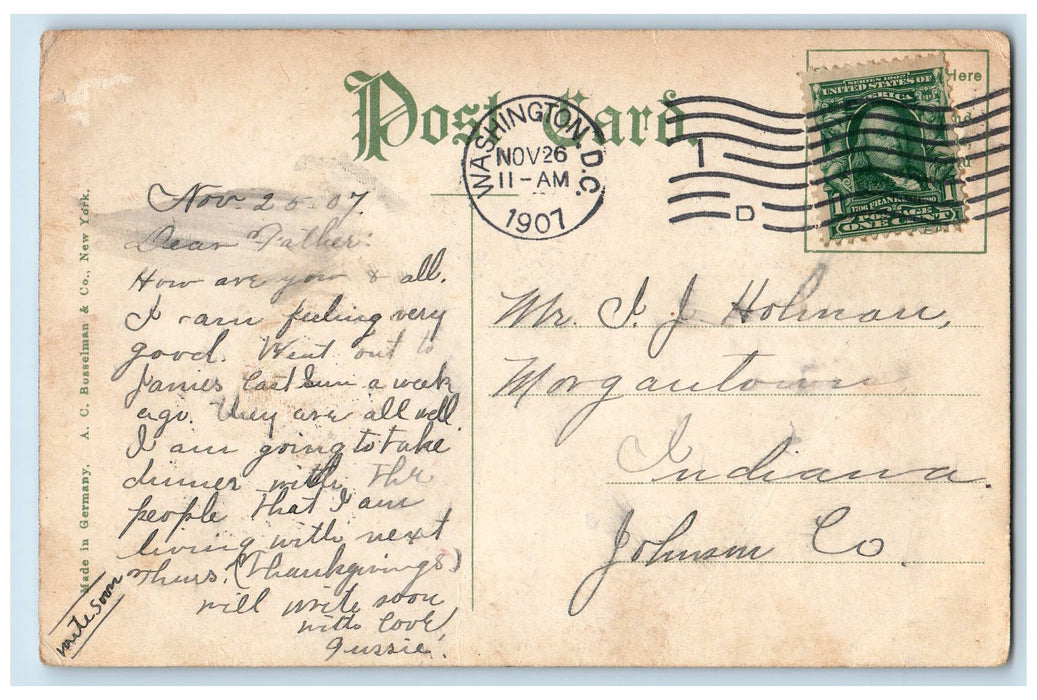 Post Card
Here
SERIES 1902
UNITED STATES OF
AMERICA
1706 FRANKLIN 1790
POSTAGE
1 ONE CENT 1
WASHINGTON, D.C.
NOV 26
11-AM
1907
1
D
Made in Germany. A. C. Bosselman & Co., New York.
Nov. 25-07.
Dear Father:
How are you & all.
I am feeling very
good. Went out to
James last Sun a week
ago. they are all well.
I am going to take
dinner with the
people that I am
living with next
Thurs. (Thanksgivings)
will write soon
with love
Gussie.
write soon
Mr. I. J. Holman,
Morgantown
Indiana.
Johnson Co